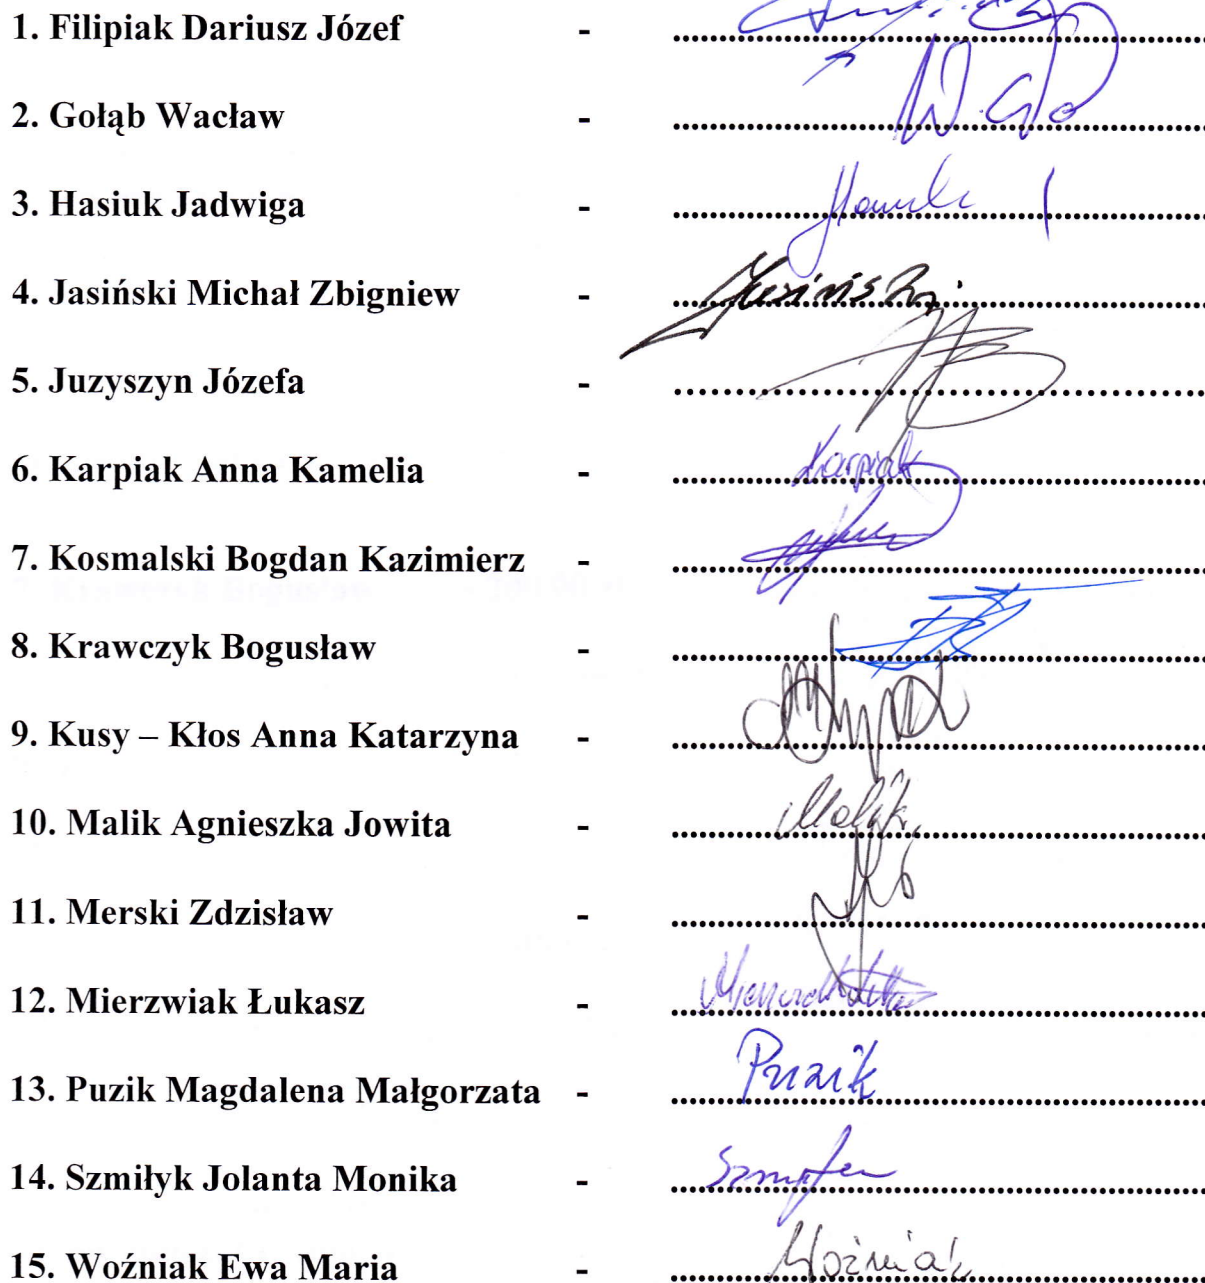 1. Filipiak Dariusz Józef -
2. Gołąb Wacław - W. Go
3. Hasiuk Jadwiga -
4. Jasiński Michał Zbigniew - Jasiński
5. Juzyszyn Józefa -
6. Karpiak Anna Kamelia - Karpiak
7. Kosmalski Bogdan Kazimierz -
8. Krawczyk Bogusław -
9. Kusy – Kłos Anna Katarzyna -
10. Malik Agnieszka Jowita - Malik
11. Merski Zdzisław -
12. Mierzwiak Łukasz -
13. Puzik Magdalena Małgorzata - Puzik
14. Szmiłyk Jolanta Monika -
15. Woźniak Ewa Maria - Woźniak